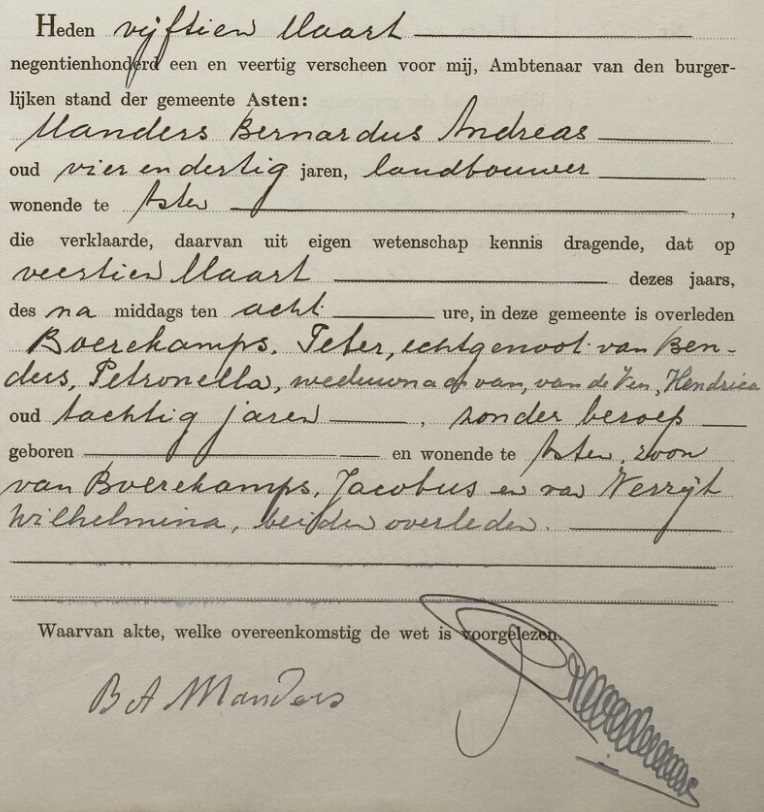 Heden vijftien Maart
negentienhonderd een en veertig verscheen voor mij, Ambtenaar van den burger-
lijken stand der gemeente Asten:
Manders Bernardus Andreas
oud vier en dertig jaren, landbouwer
wonende te Asten ,
die verklaarde, daarvan uit eigen wetenschap kennis dragende, dat op
veertien Maart dezes jaars,
des na middags ten acht ure, in deze gemeente is overleden
Boerekamps, Peter, echtgenoot van Ben-
ders, Petronella, weduwnaar van, van de Ven, Hendrica
oud tachtig jaren , zonder beroep
geboren en wonende te Asten, zoon
van Boerekamps, Jacobus en van Verrijt
Wilhelmina, beiden overleden.
Waarvan akte, welke overeenkomstig de wet is voorgelezen.
B A Manders